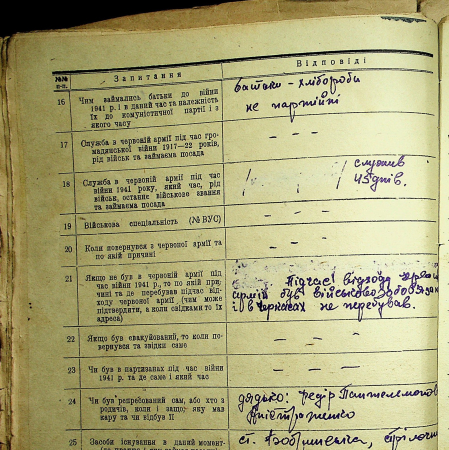 №№ п-п. Запитання Відповіді
16 Чим займались батьки до війни
1941 р. і в даний час та належність
їх до комуністичної партії і з
якого часу
батьки - хлібороби
не партійні
17 Служба в червоній армії під час гро-
мадянської війни 1917—22 років,
рід військ та займаема посада
— — —
18 Служба в червоній армії під час
війни 1941 року, який час, рід
військ, останнє військове звання
та займаема посада
служив
45 днів.
19 Військова спеціальність (№ ВУС)
— — —
20 Коли повернувся з червоної армії та
по якій причині
— — —
21 Якщо не був в червоній армії під
час війни 1941 р., то по якій при-
чині та де перебував підчас відходу
ходу червоної армії (чим може
підтвердити, а коли свідками то їх
адреса)
Підчас відходу
армій був військовозобов'язан
і в Черкасах не перебував.
22 Якщо був евакуйований, то коли по-
вернувся та звідки саме
— — —
23 Чи був в партизанах під час війни
1941 р. та де саме і який час
— — —
24 Чи був репресований сам, або хто з
родичів, коли і защо, яку мав
кару та чи відбув її
дядько: Федір Пантелемонов
25 Засоби існування в даний момент
ст. Бобринська,